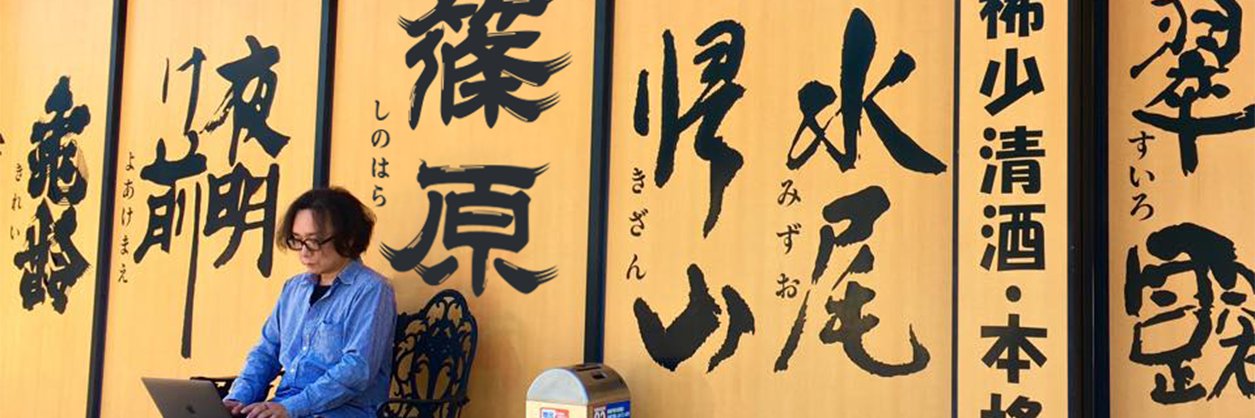 翠露
すいろ
稀少清酒・本格
水尾
みずお
帰山
きざん
篠原
しのはら
夜明け前
よあけまえ
亀齢
きれい